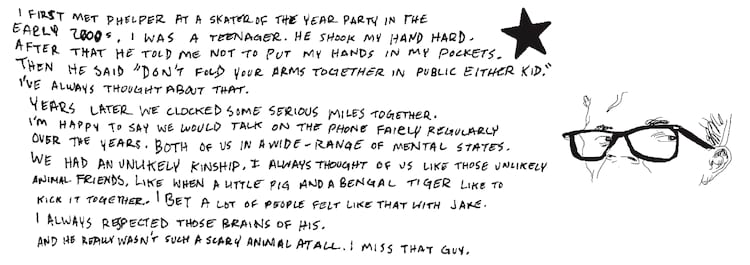 I FIRST MET PHELPER AT A SKATER OF THE YEAR PARTY IN THE
EARLY 2000s. I WAS A TEENAGER. HE SHOOK MY HAND HARD.
AFTER THAT HE TOLD ME NOT TO PUT MY HANDS IN MY POCKETS.
THEN HE SAID "DON'T FOLD YOUR ARMS TOGETHER IN PUBLIC EITHER KID."
I'VE ALWAYS THOUGHT ABOUT THAT.
YEARS LATER WE CLOCKED SOME SERIOUS MILES TOGETHER.
I'M HAPPY TO SAY WE WOULD TALK ON THE PHONE FAIRLY REGULARLY
OVER THE YEARS. BOTH OF US IN A WIDE-RANGE OF MENTAL STATES.
WE HAD AN UNLIKELY KINSHIP. I ALWAYS THOUGHT OF US LIKE THOSE UNLIKELY
ANIMAL FRIENDS, LIKE WHEN A LITTLE PIG AND A BENGAL TIGER LIKE TO
KICK IT TOGETHER. I BET A LOT OF PEOPLE FELT LIKE THAT WITH JAKE.
I ALWAYS RESPECTED THOSE BRAINS OF HIS.
AND HE REALLY WASN'T SUCH A SCARY ANIMAL AT ALL. I MISS THAT GUY.